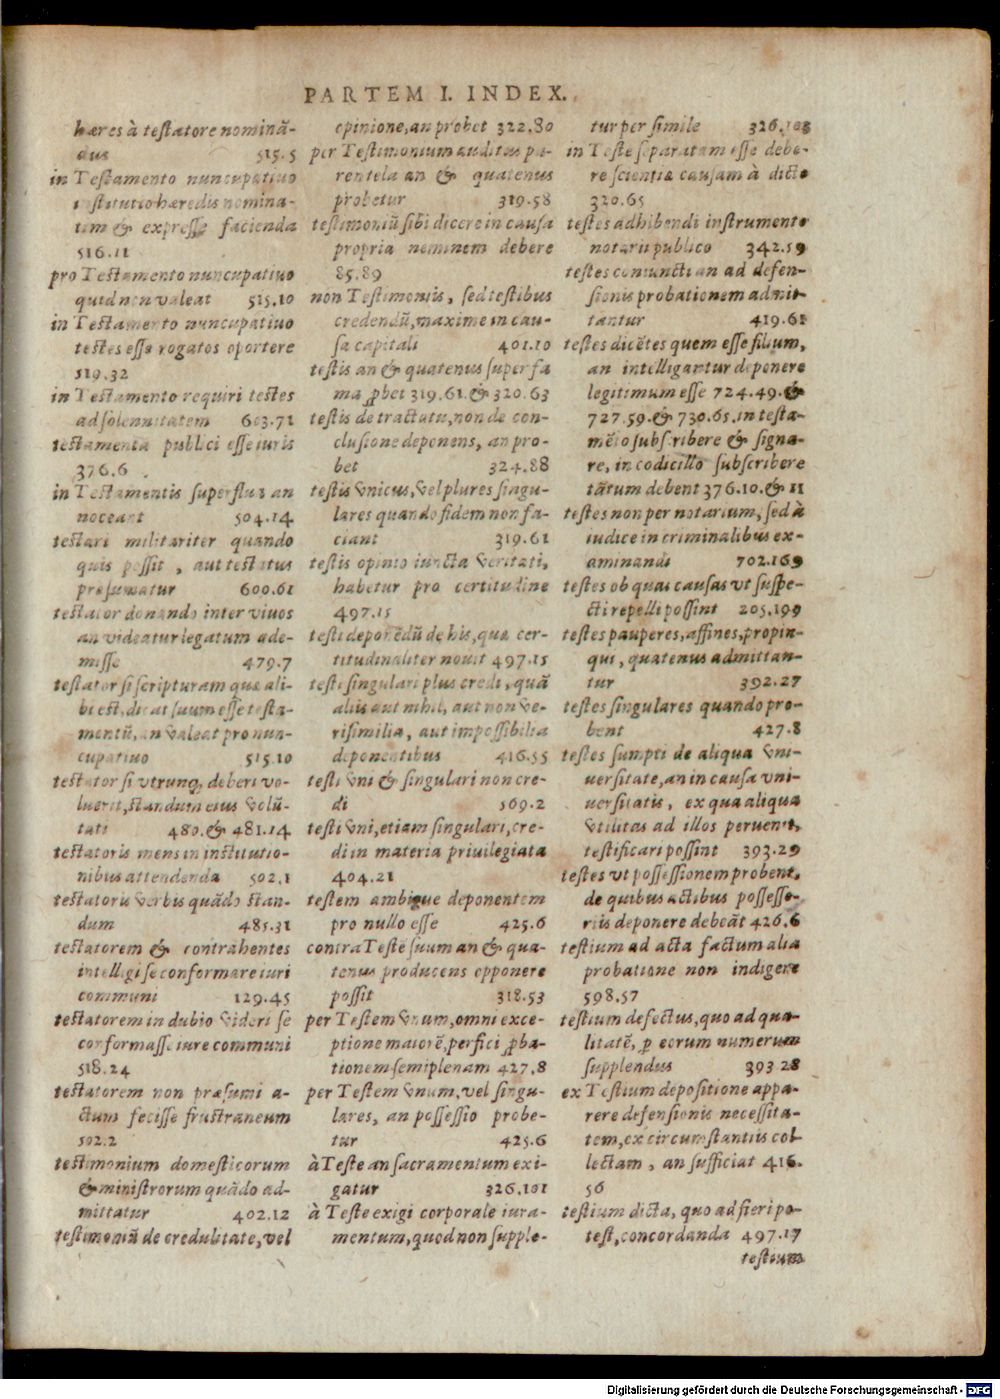 PARTEM I. INDEX.
hæres à testatore nominã-
dus 515.5
in Testamento nuncupatiuo
institutio hæredis nomina-
tim & expresse facienda
516.11
pro Testamento nuncupatiuo
quid non valeat 515.10
in Testamento nuncupatiuo
testes esse rogatos oportere
519.32
in Testamento requiri testes
ad solennitatem 603.71
testamenta publici esse iuris
376.6
in Testamentis superflua an
noceant 504.14
testari militariter quando
quis possit, aut testatus
præsumatur 600.61
testator donando inter viuos
an videatur legatum ade-
misse 479.7
testator si scripturam quæ ali-
bi est, dicat suum esse testa-
mentũ, an valeat pro nun-
cupatiuo 515.10
testator si vtrunq; deberi vo-
luerit, standum eius volũ-
tati 480.& 481.14
testatoris mens in institutio-
nibus attendenda 502.1
testatoris verbis quãdo stan-
dum 485.31
testatorem & contrahentes
intelligi se conformare iuri
communi 129.45
testatorem in dubio videri se
conformasse iure communi
518.24
testatorem non præsumi a-
ctum fecisse frustraneum
502.2
testimonium domesticorum
& ministrorum quãdo ad-
mittatur 402.12
testimoniũ de credulitate, vel
opinione, an probet 322.80
per Testimonium auditus pa-
rentela an & quatenus
probetur 319.58
testimoniũ sibi dicere in causa
propria neminem debere
85.89
non Testimoniis, sed testibus
credendũ, maxime in cau-
sa capitali 401.10
testis an & quatenus super fa
ma ꝓbet 319.61.& 320.63
testis de tractatu, non de con-
clusione deponens, an pro-
bet 324.88
testis vnicus, vel plures singu-
lares quando fidem non fa-
ciant 319.61
testis opinio iuncta veritati,
habetur pro certitudine
497.15
testi deponẽdũ de his, quæ cer-
titudinaliter nouit 497.15
testi singulari plus credi, quã
aliis aut nihil, aut non ve-
risimilia, aut impossibilia
deponentibus 416.55
testi vni & singulari non cre-
di 569.2
testi vni, etiam singulari, cre-
di in materia priuilegiata
404.21
testem ambigue deponentem
pro nullo esse 425.6
contra Testẽ suum an & qua-
tenus producens opponere
possit 318.53
per Testem vnum, omni exce-
ptione maiorẽ, perfici ꝓba-
tionem semiplenam 427.8
per Testem vnum, vel singu-
lares, an possessio probe-
tur 425.6
à Teste an sacramentum exi-
gatur 326.101
à Teste exigi corporale iura-
mentum, quod non supple-
tur per simile 326.103
in Teste separatam esse debe-
re scientiæ causam à dicto
320.65
testes adhibendi instrumento
notarii publico 342.59
testes coniuncti an ad defen-
sionis probationem admit-
tantur 419.61
testes dicẽtes quem esse filium,
an intelligantur deponere
legitimum esse 724.49.&
727.59.& 730.65. in testa-
mẽto subscribere & signa-
re, in codicillo subscribere
tãtum debent 376.10.& 11
testes non per notarium, sed à
iudice in criminalibus ex-
aminandi 702.169
testes ob quas causas vt suspe-
cti repelli possint 205.199
testes pauperes, affines, propin-
qui, quatenus admittan-
tur 392.27
testes singulares quando pro-
bent 427.8
testes sumpti de aliqua vni-
uersitate, an in causa vni-
uersitatis, ex qua aliqua
vtilitas ad illos peruenit,
testificari possint 393.29
testes vt possessionem probent,
de quibus actibus possesso-
riis deponere debeãt 426.6
testium ad acta factum alia
probatione non indigere
598.57
testium defectus, quo ad qua-
litatẽ, ꝑ eorum numerum
supplendus 393 28
ex Testium depositione appa-
rere defensionis necessita-
tem, ex circumstantiis col-
lectam, an sufficiat 416.
56
testium dicta, quo ad fieri po-
test, concordanda 497.17
testium
Digitalisierung gefördert durch die Deutsche Forschungsgemeinschaft - DFG